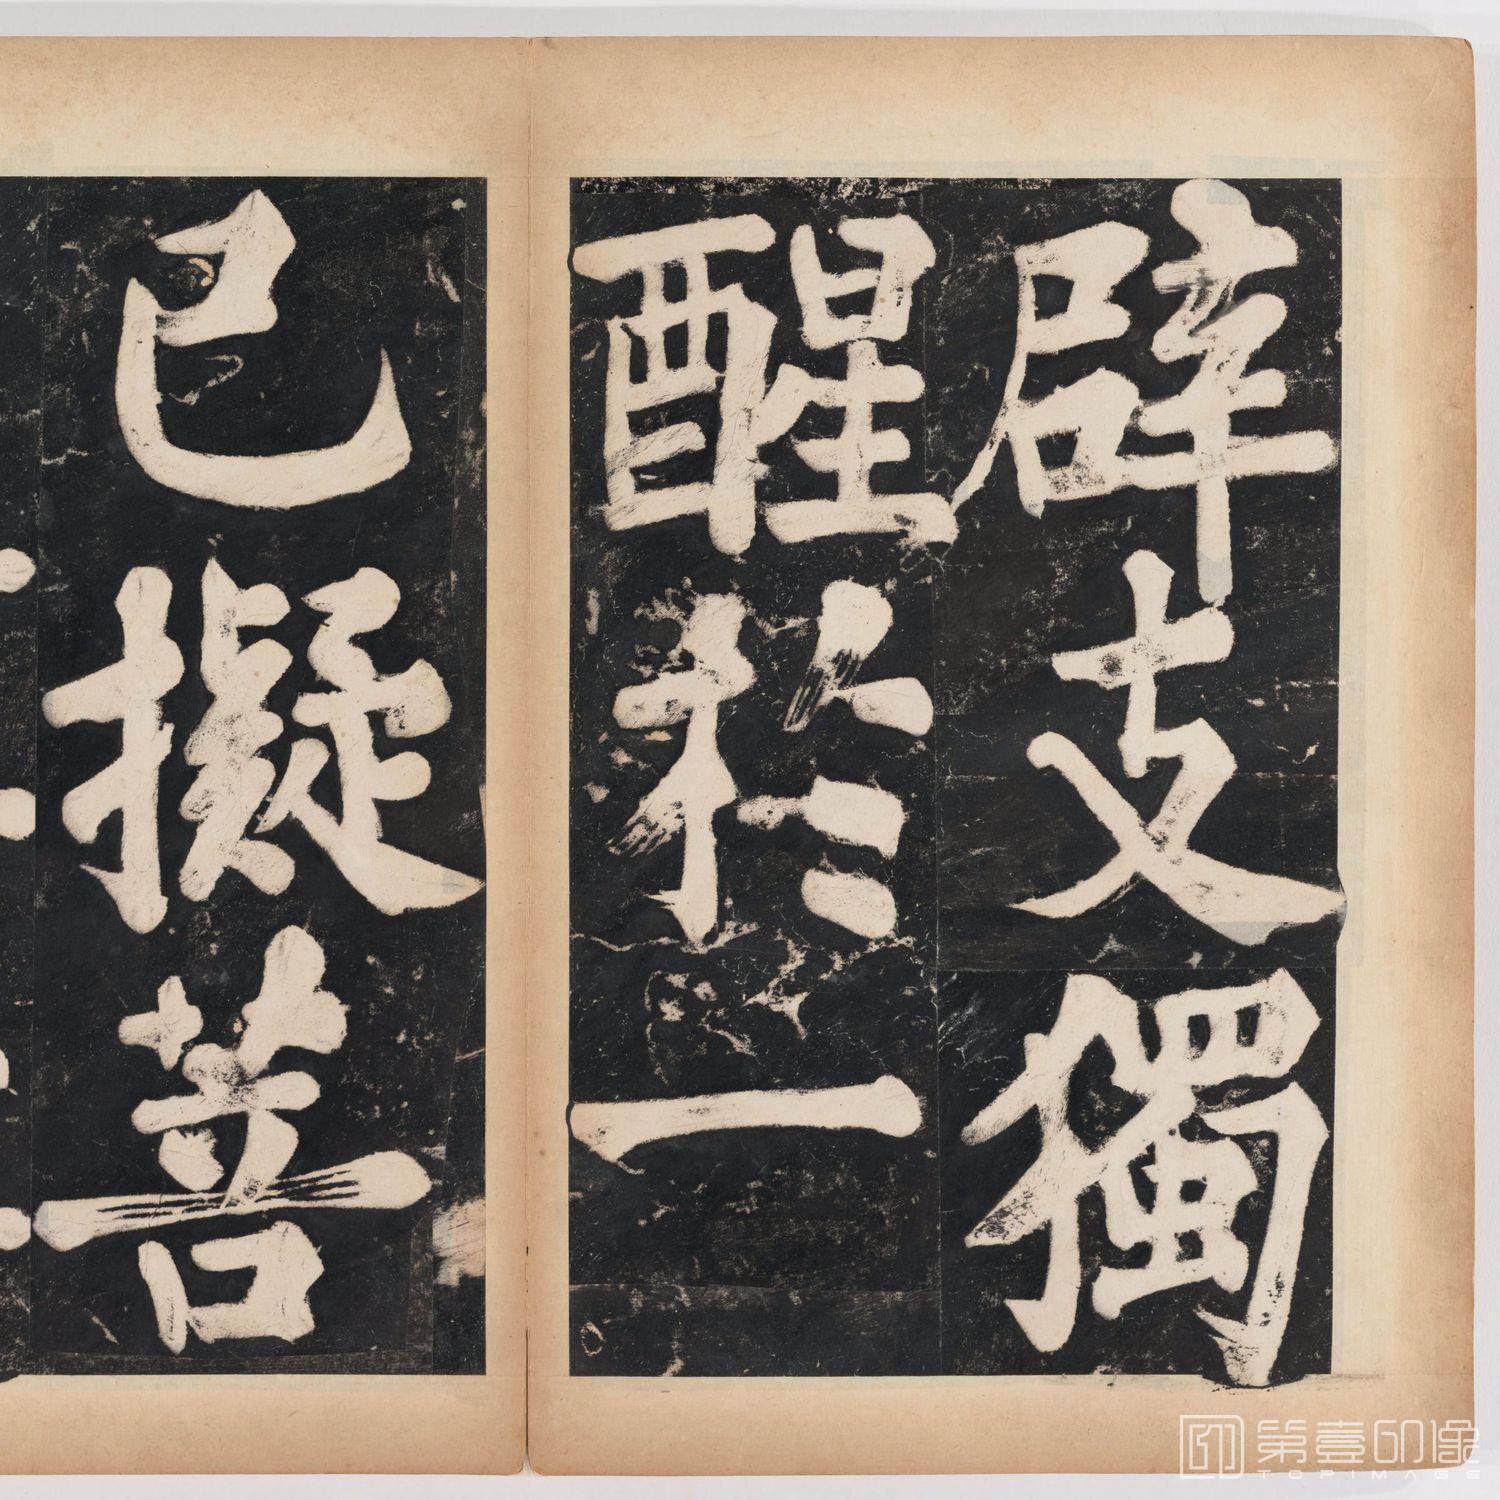 辟支獨
醒於一
已擬菩
第壹印像
TOPIMAGE